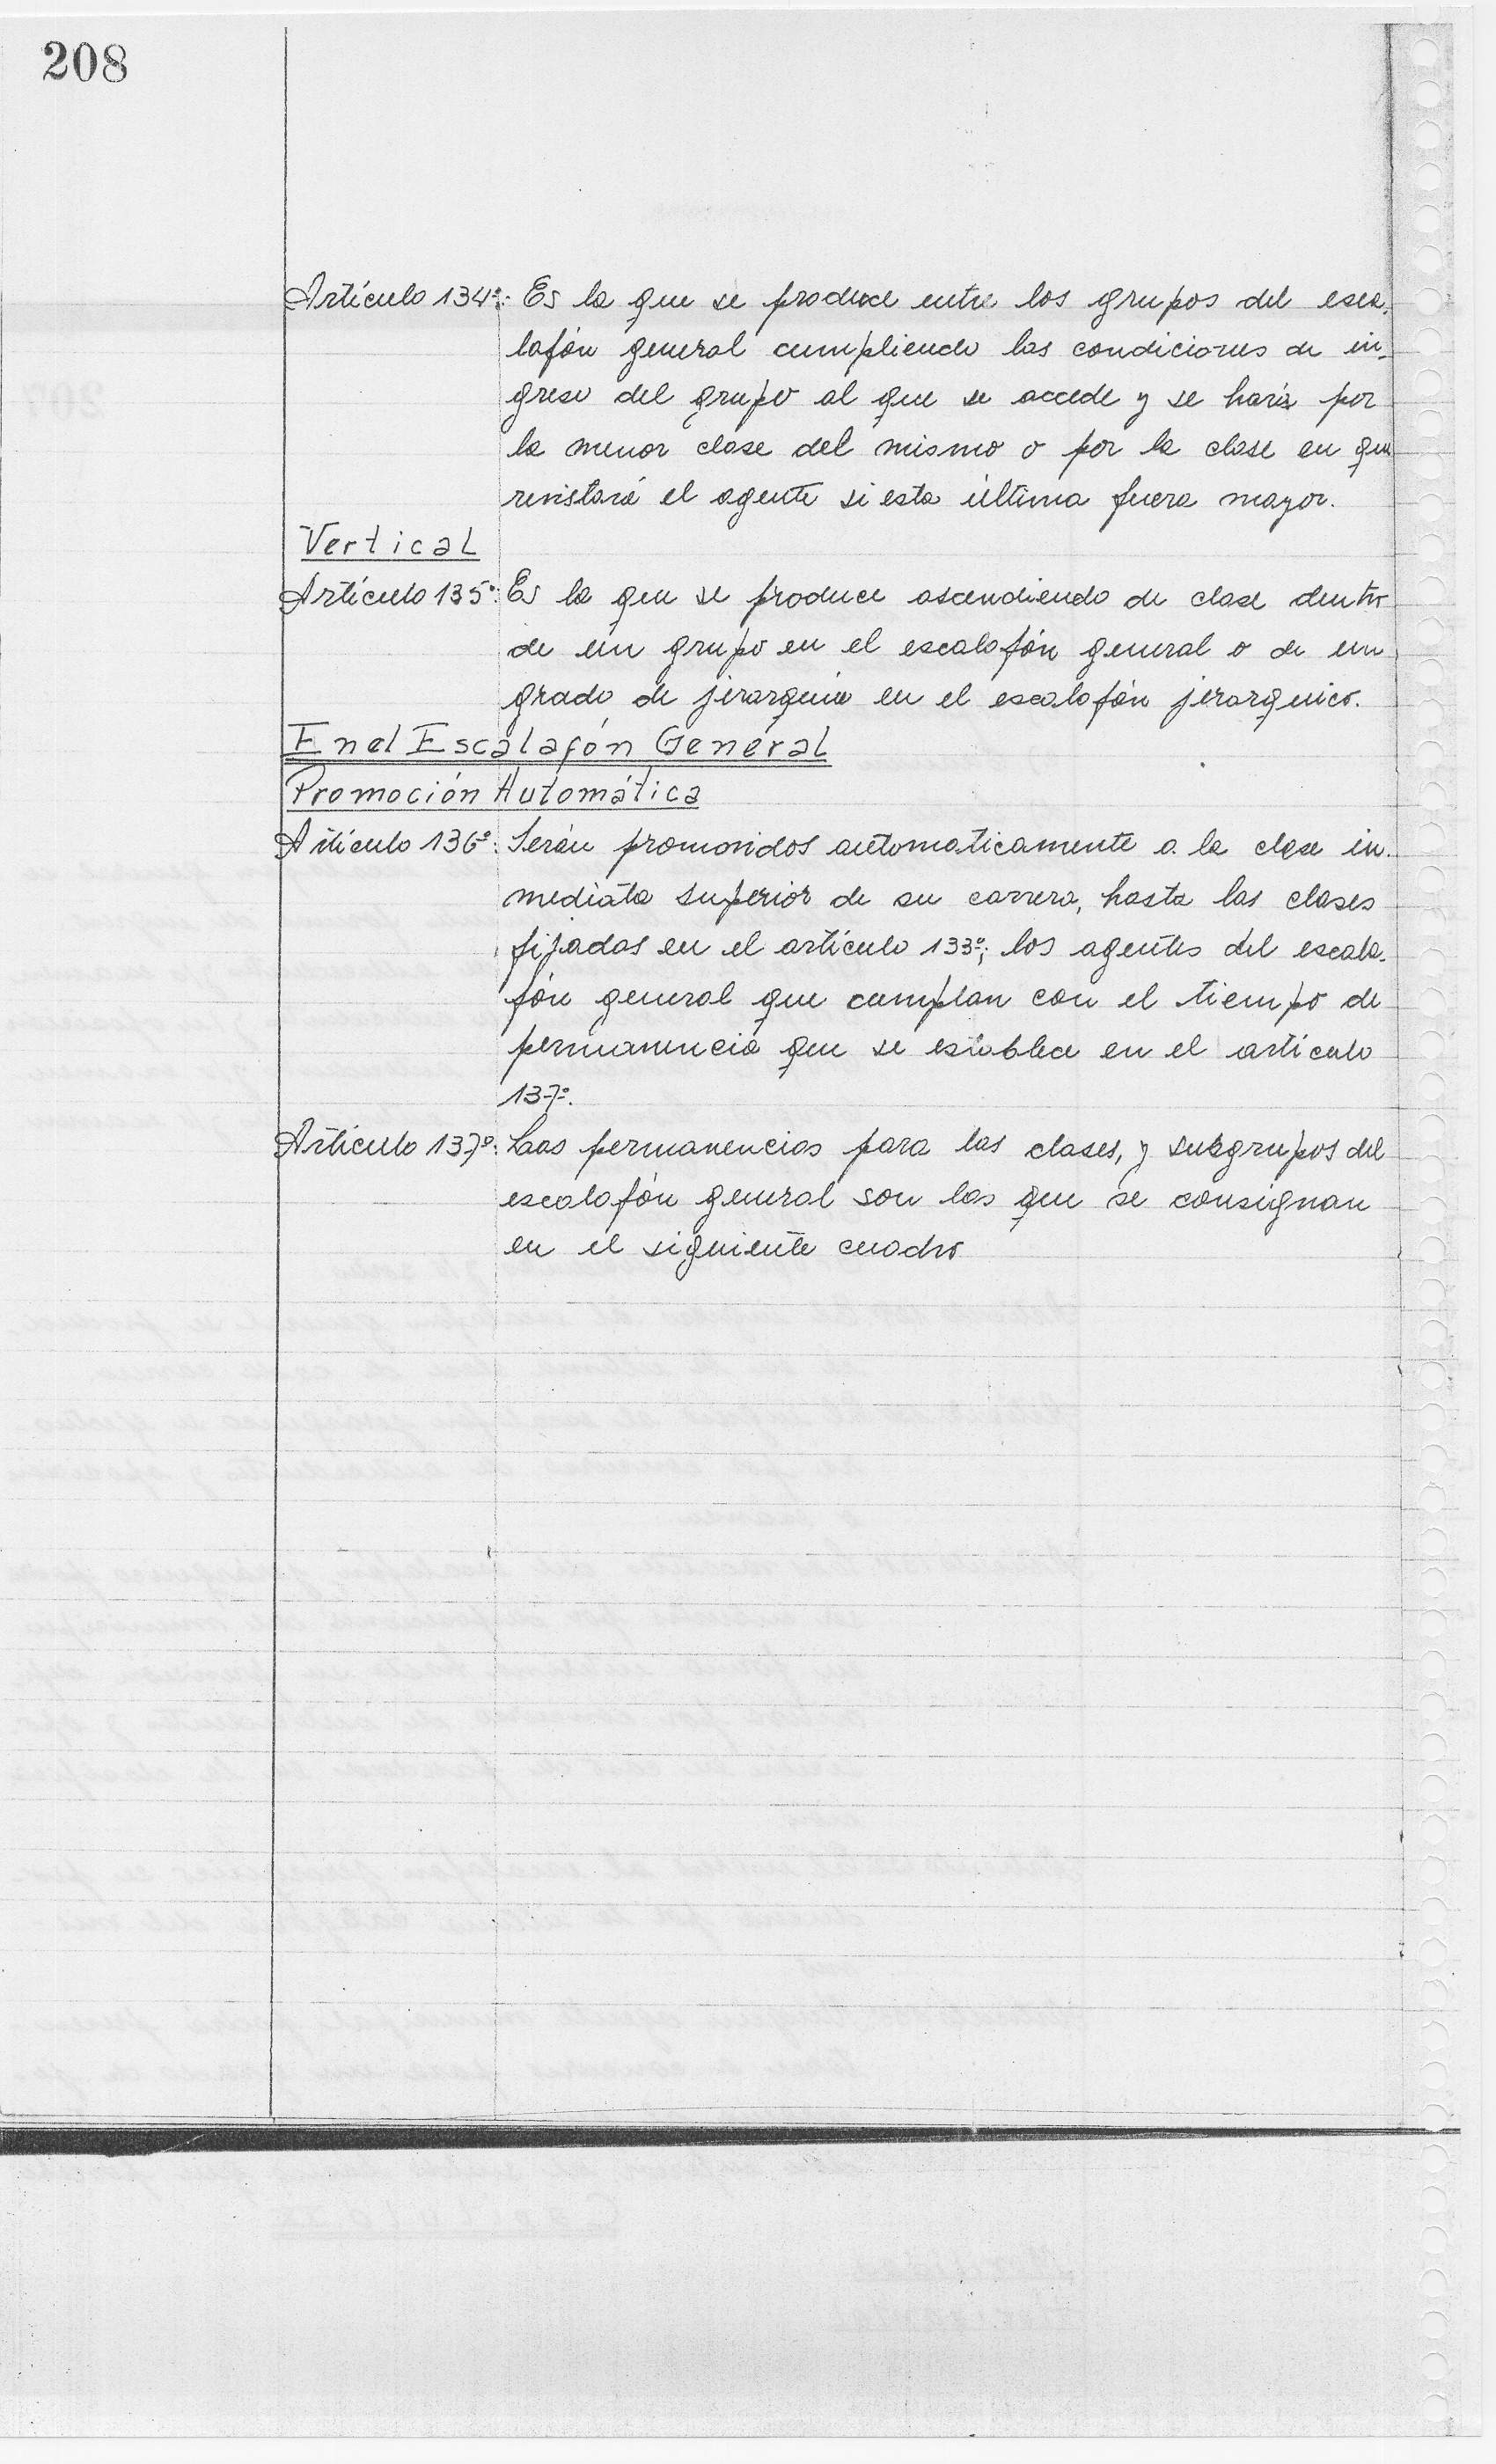 208
Artículo 134º: Es la que se produce entre los grupos del esca-
lafón general cumpliendo las condiciones de in-
greso del grupo al que se accede y se hará por
la menor clase del mismo o por la clase en que
revistará el agente si esta última fuera mayor.
Vertical
Artículo 135º: Es la que se produce ascendiendo de clase dentro
de un grupo en el escalafón general o de un
grado de jerarquía en el escalafón jerarquico.
En el Escalafón General
Promoción Automática
Artículo 136º: Serán promovidos automaticamente a la clase in-
mediata superior de su carrera, hasta las clases
fijadas en el artículo 133º; los agentes del escala-
fón general que cumplan con el tiempo de
permanencia que se establece en el artículo
137º.
Artículo 137º: Las permanencias para las clases, y subgrupos del
escalafón general son las que se consignan
en el siguiente cuadro